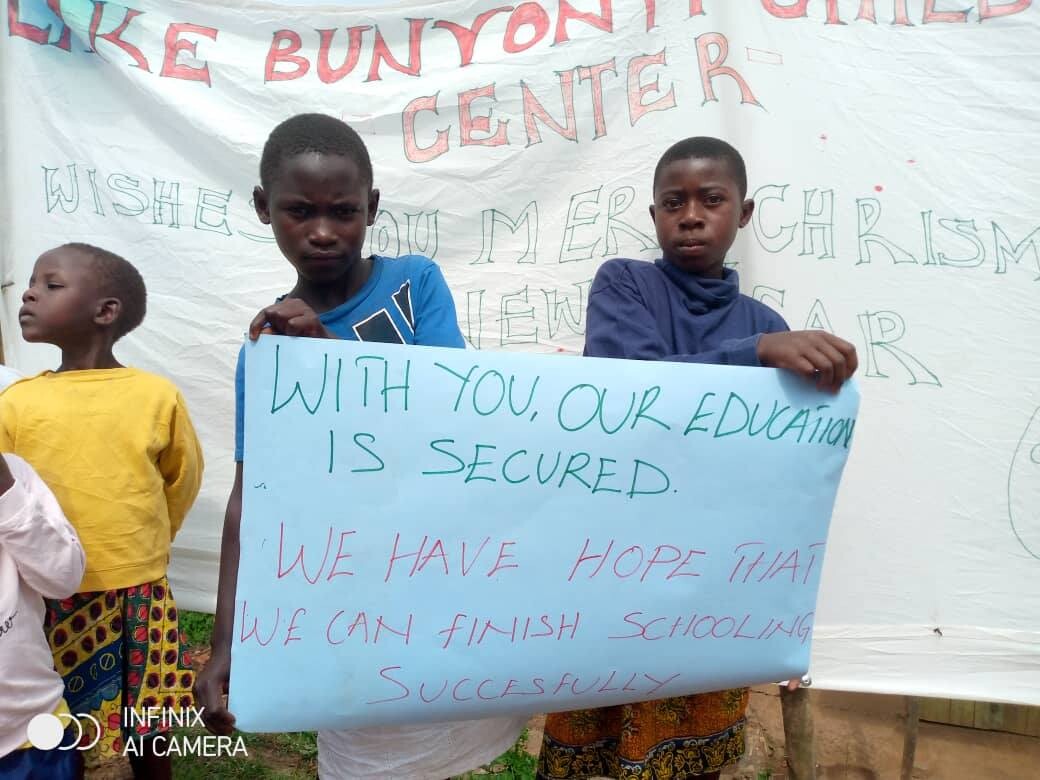 LIKE BUNYONYI CHILD
CENTER
WISHES YOU MERRY CHRISM
NEW YEAR
WITH YOU, OUR EDUCATION
IS SECURED.
WE HAVE HOPE THAT
WE CAN FINISH SCHOOLING
SUCCESFULLY
INFINIX
AI CAMERA